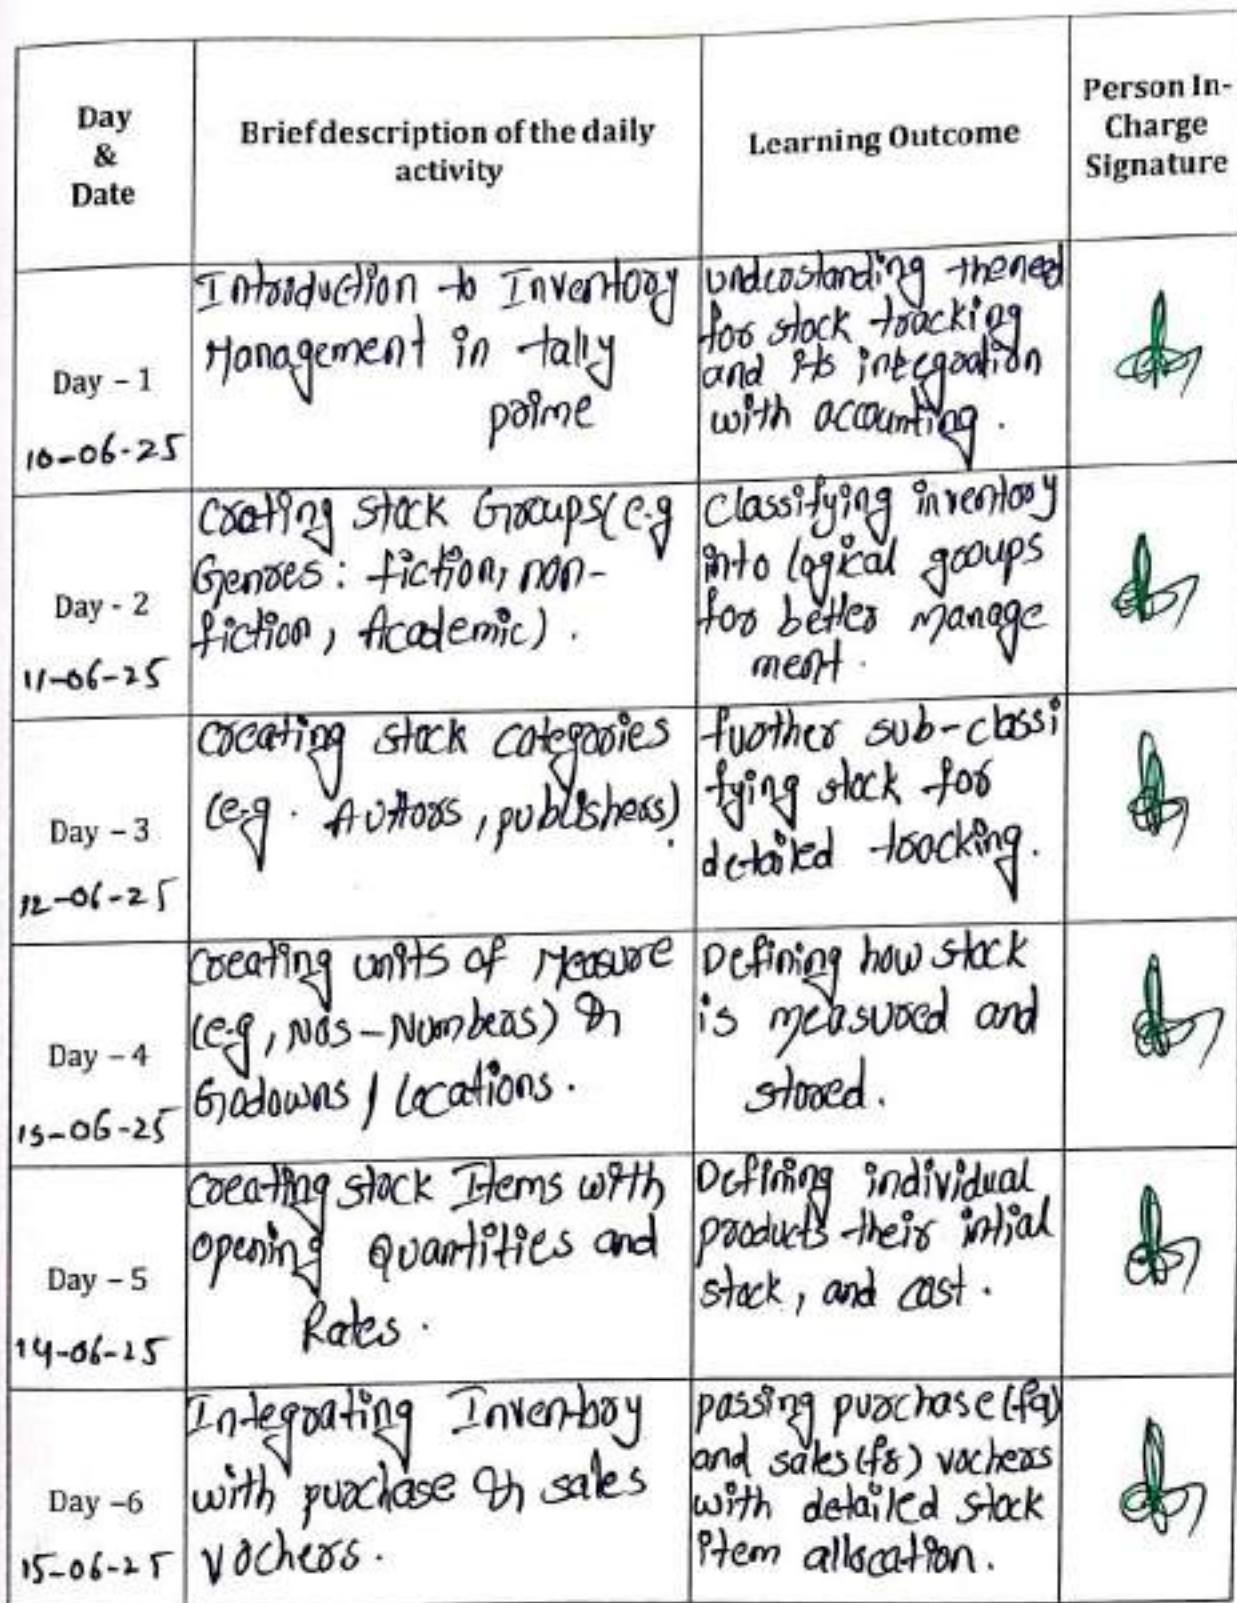 Day
&
Date
Brief description of the daily
activity
Learning Outcome
Person In-
Charge
Signature
Day - 1
10-06-25
Introduction to Inventory
Management in tally
prime
understanding theneed
for stock tracking
and its integration
with accounting.
Day - 2
11-06-25
creating stock Groups(e.g
Genres: fiction, non-
fiction, Academic).
Classifying inventory
into logical groups
for better manage
ment.
Day - 3
12-06-25
creating stock categories
(e.g. Autors, publishers).
further sub-classi
fying stock for
detailed tracking.
Day - 4
13-06-25
creating units of Measure
(e.g, Nos-Numbers) &
Godowns / locations.
Defining how stock
is measured and
stored.
Day - 5
14-06-25
creating stock Items with
opening Quantities and
Rates.
Defining individual
products their intial
stock, and cost.
Day -6
15-06-25
Integrating Inventory
with purchase & sales
vochers.
passing purchase (f9)
and sales (f8) vochers
with detailed stock
item allocation.